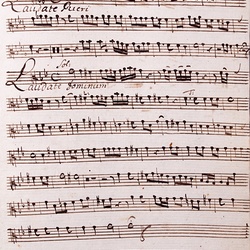 Laudate Pueri
Solo
Laudate Dominum